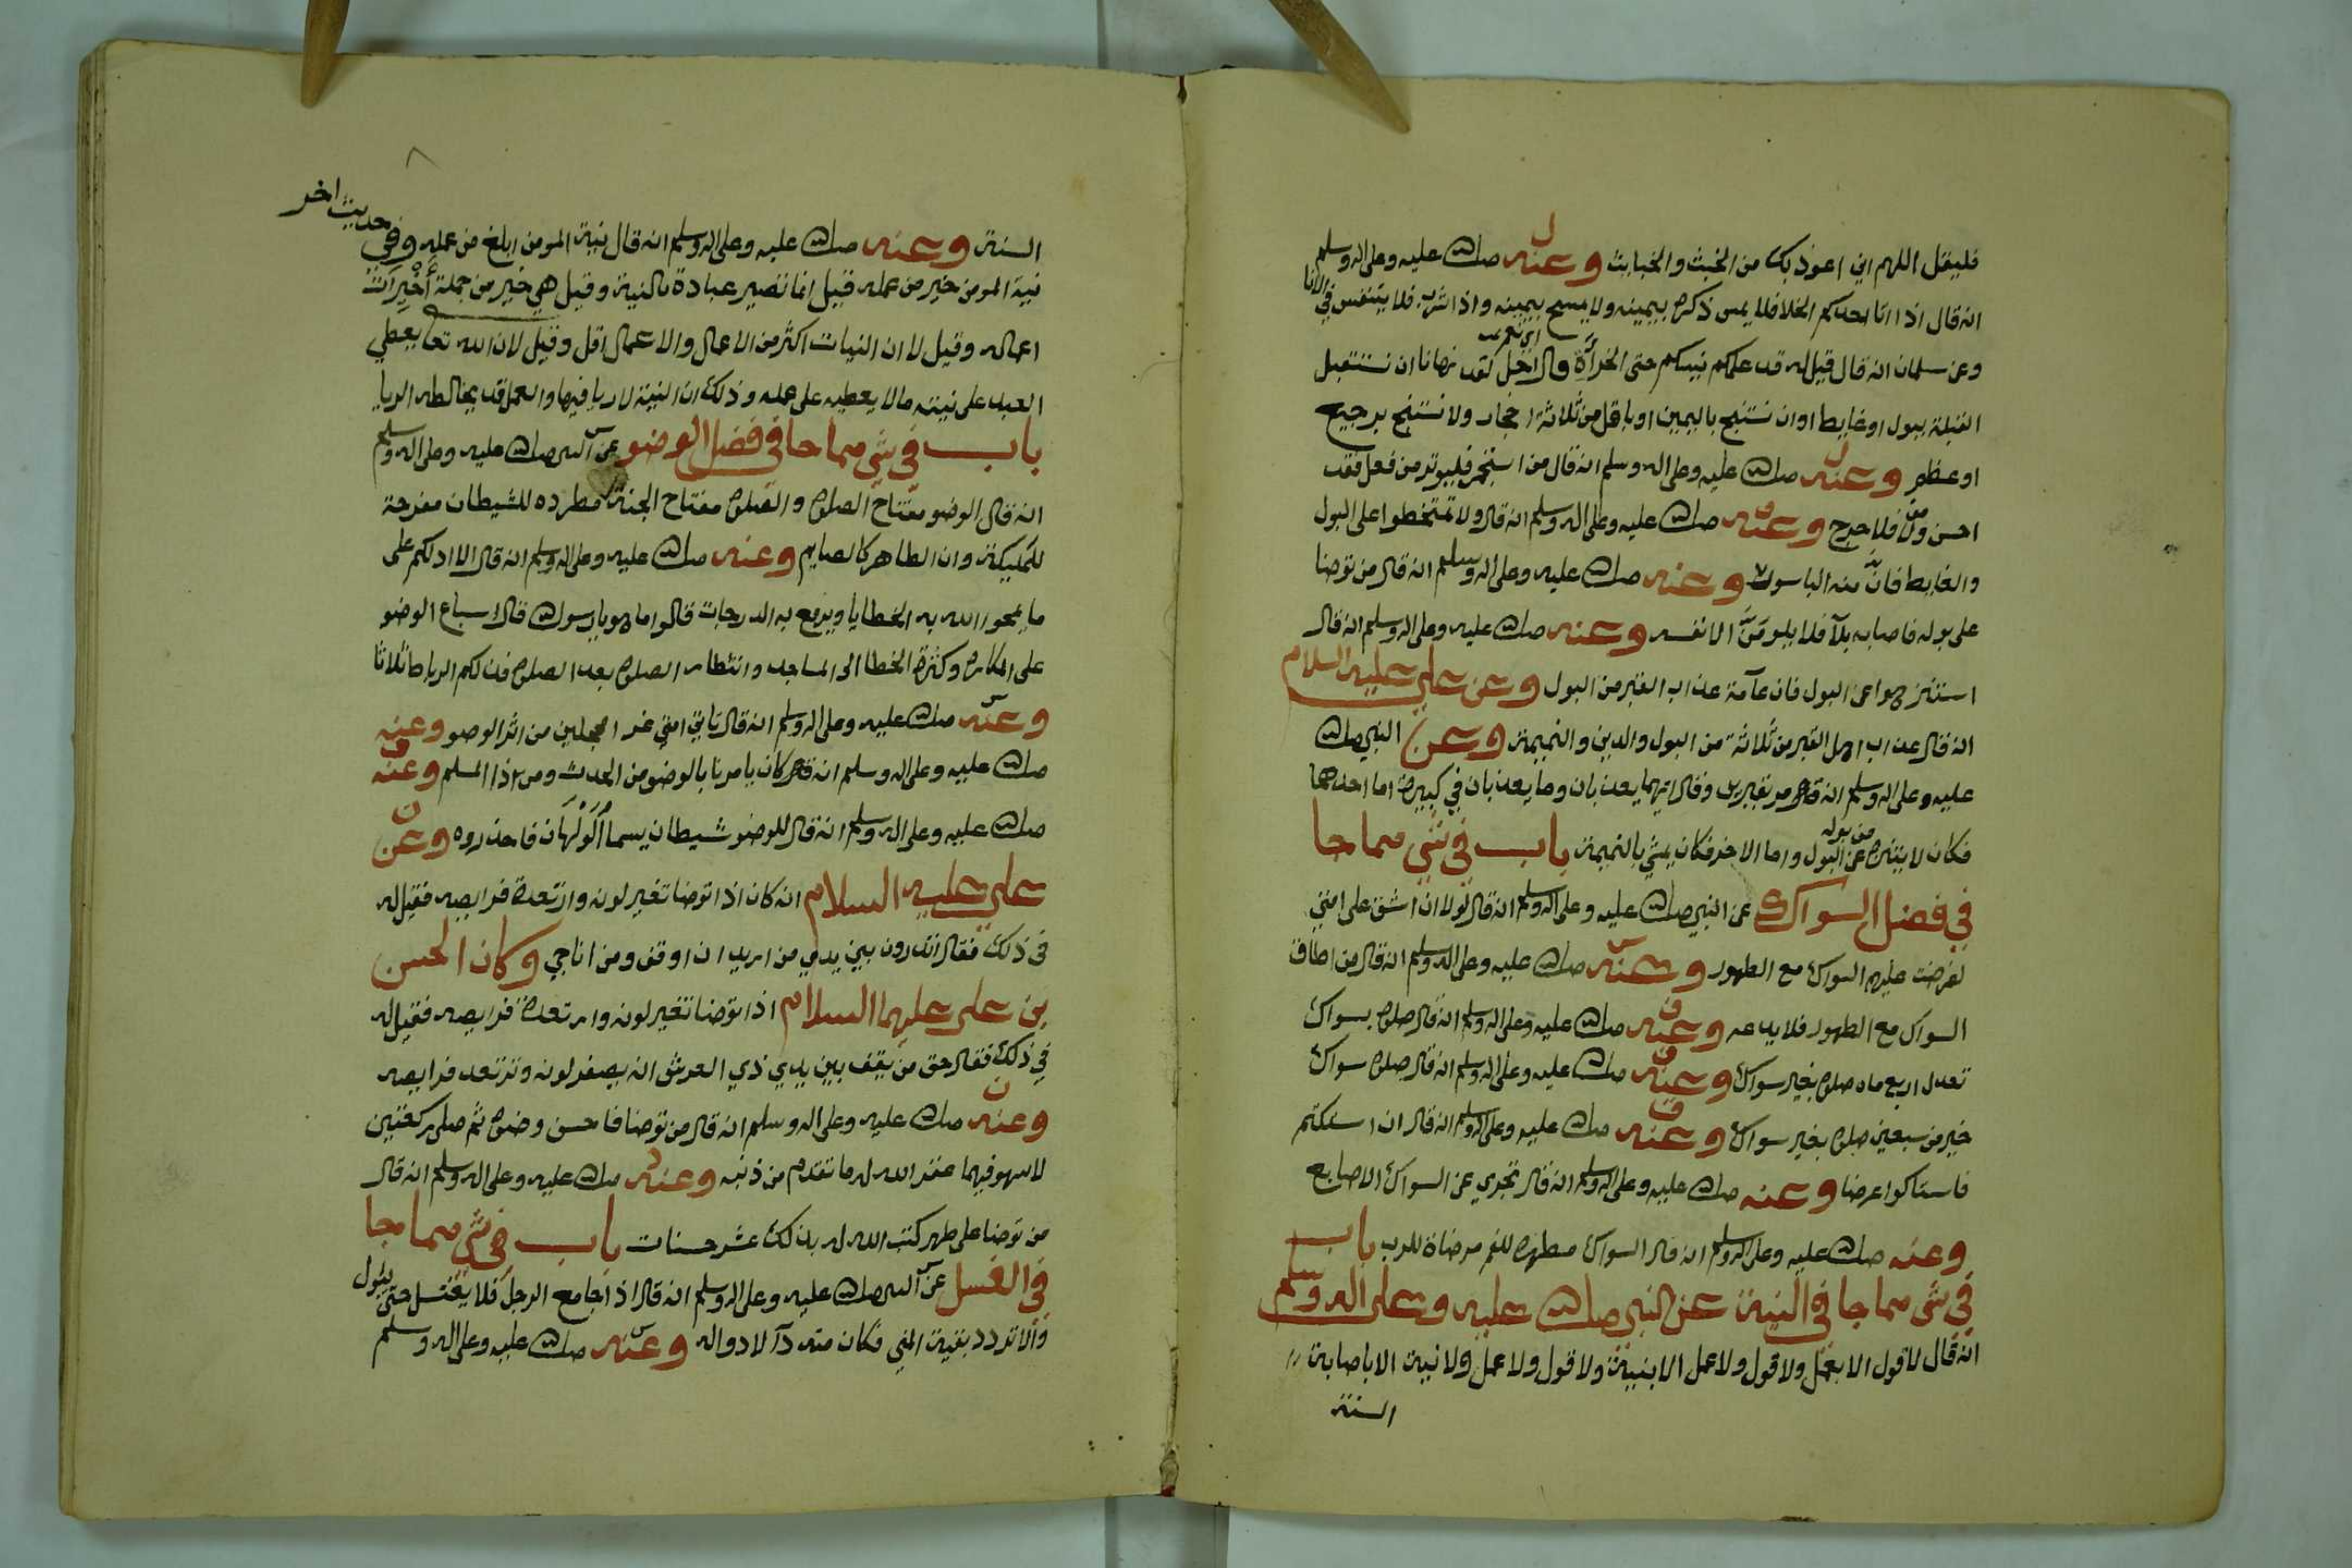 فليقل اللهم اني اعوذ بك من الخبث والخبايث وعنه صلى الله عليه وعلى اله وسلم
انه قال اذا اتا احدكم الخلا فلا يمس ذكره بيمينه ولا يمسح بيمينه واذا شرب فلا يتنفس في الانا
وعن سلمان انه قال قيل له قد علمكم نبيكم حتى الخرأة قال اجل لقد نهانا ان نستقبل
القبلة ببول او غايط او ان نستنج باليمين او باقل من ثلاثة احجار ولا نستنج برجيع
او عظم وعنه صلى الله عليه وعلى اله وسلم انه قال من استجمر فليوتر من فعل فقد
احسن ومن لا فلا حرج وعنه صلى الله عليه وعلى اله وسلم انه قال ولا تمتخطوا على البول
والغايط فان منه الباسور وعنه صلى الله عليه وعلى اله وسلم انه قال من توضا
على بوله فاصابه بلآ فلا يلومن الا نفسه وعنه صلى الله عليه وعلى اله وسلم انه قال
استنزهوا عن البول فان عآمة عذاب القبر من البول وعن علي عليه السلام
انه قال عذاب اهل القبر من ثلاثة من البول والدين والنميمة وعن النبي صلى الله
عليه وعلى اله وسلم انه مر بقبرين وقال انهما يعذبان وما يعذبان في كبيرة اما احدهما
فكان لا يتنزه عن البول من بوله واما الاخر فكان يمشي بالنميمة باب في شي مما جا
في فضل السواك عن النبي صلى الله عليه وعلى اله وسلم انه قال لولا ان اشق على امتي
لفرضت عليهم السواك مع الطهور وعنه صلى الله عليه وعلى اله وسلم انه قال من اطاق
السواك مع الطهور فلا يدعه وعنه صلى الله عليه وعلى اله وسلم انه قال صلوة بسواك
تعدل اربع ماه صلوة بغير سواك وعنه صلى الله عليه وعلى اله وسلم انه قال صلوة سواك
خير من سبعين صلوة بغير سواك وعنه صلى الله عليه وعلى اله وسلم انه قال ان استكتم
فاستاكوا عرضا وعنه صلى الله عليه وعلى اله وسلم انه قال تجزي عن السواك الاصابع
وعنه صلى الله عليه وعلى اله وسلم انه قال السواك مطهرة للفم مرضاة للرب باب
في شي مما جا في النية عن النبي صلى الله عليه وعلى اله وسلم
انه قال لا قول الا بعمل ولا قول ولا عمل الا بنية ولا قول ولا عمل ولا نية الا باصابة
السنة
السنة وعنه صلى الله عليه وعلى اله وسلم انه قال نية المومن ابلغ من عمله وفي حديث اخر
نية المومن خير من عمله قيل انما تصير عبادة بالنية وقيل هي خير من جملة أخيرات
اعماله وقيل لان النيات اكثر من الاعمال والاعمال اقل وقيل لان الله تعا يعطي
العبد على نيته ما لا يعطيه على عمله وذلك ان النية لا ريا فيها والعمل قد يخالطه الريا
باب في شي مما جا في فضل الوضو عن النبي صلى الله عليه وعلى اله وسلم
انه قال الوضو مفتاح الصلوة والصلوة مفتاح الجنة مطرده للشيطان مفرحة
للمليكة وان الطاهر كالصايم وعنه صلى الله عليه وعلى اله وسلم انه قال الا ادلكم على
ما يمحوا الله به الخطايا ويرفع به الدرجات قالوا ما هو يا رسول الله قال اسباغ الوضو
على المكاره وكثرة الخطا الى المساجد وانتظار الصلوة بعد الصلوة فذلكم الرباط ثلاثا
وعنه صلى الله عليه وعلى اله وسلم انه قال تاتي امتي غر المحجلين من اثر الوضو وعنه
صلى الله عليه وعلى اله وسلم انه كان يامرنا بالوضو من الحدث ومن اذا المسلم وعنه
صلى الله عليه وعلى اله وسلم انه قال للوضو شيطان يسما الولهان فاحذروه وعن
علي عليه السلام انه كان اذا توضا تغير لونه وارتعدة فرايصه فقيل له
في ذلك فقال اتدرون بين يدي من اريد ان اوقف ومن اناجي وكان الحسن
بن علي عليهما السلام اذا توضا تغير لونه وارتعدة فرايصه فقيل له
في ذلك فقال حق من يقف بين يدي ذي العرش ان يصفر لونه وترتعد فرايصه
وعنه صلى الله عليه وعلى اله وسلم انه قال من توضا فاحسن وضوه ثم صلى ركعتين
لا سهو فيهما غفر الله له ما تقدم من ذنبه وعنه صلى الله عليه وعلى اله وسلم انه قال
من توضا على طهر كتب الله له بذلك عشر حسنات باب في شي مما جا
في الغسل عن النبي صلى الله عليه وعلى اله وسلم انه قال اذا جامع الرجل فلا يغتسل حتى يبول
والا تردد بقية المني فكان منه دآ لا دوا له وعنه صلى الله عليه وعلى اله وسلم